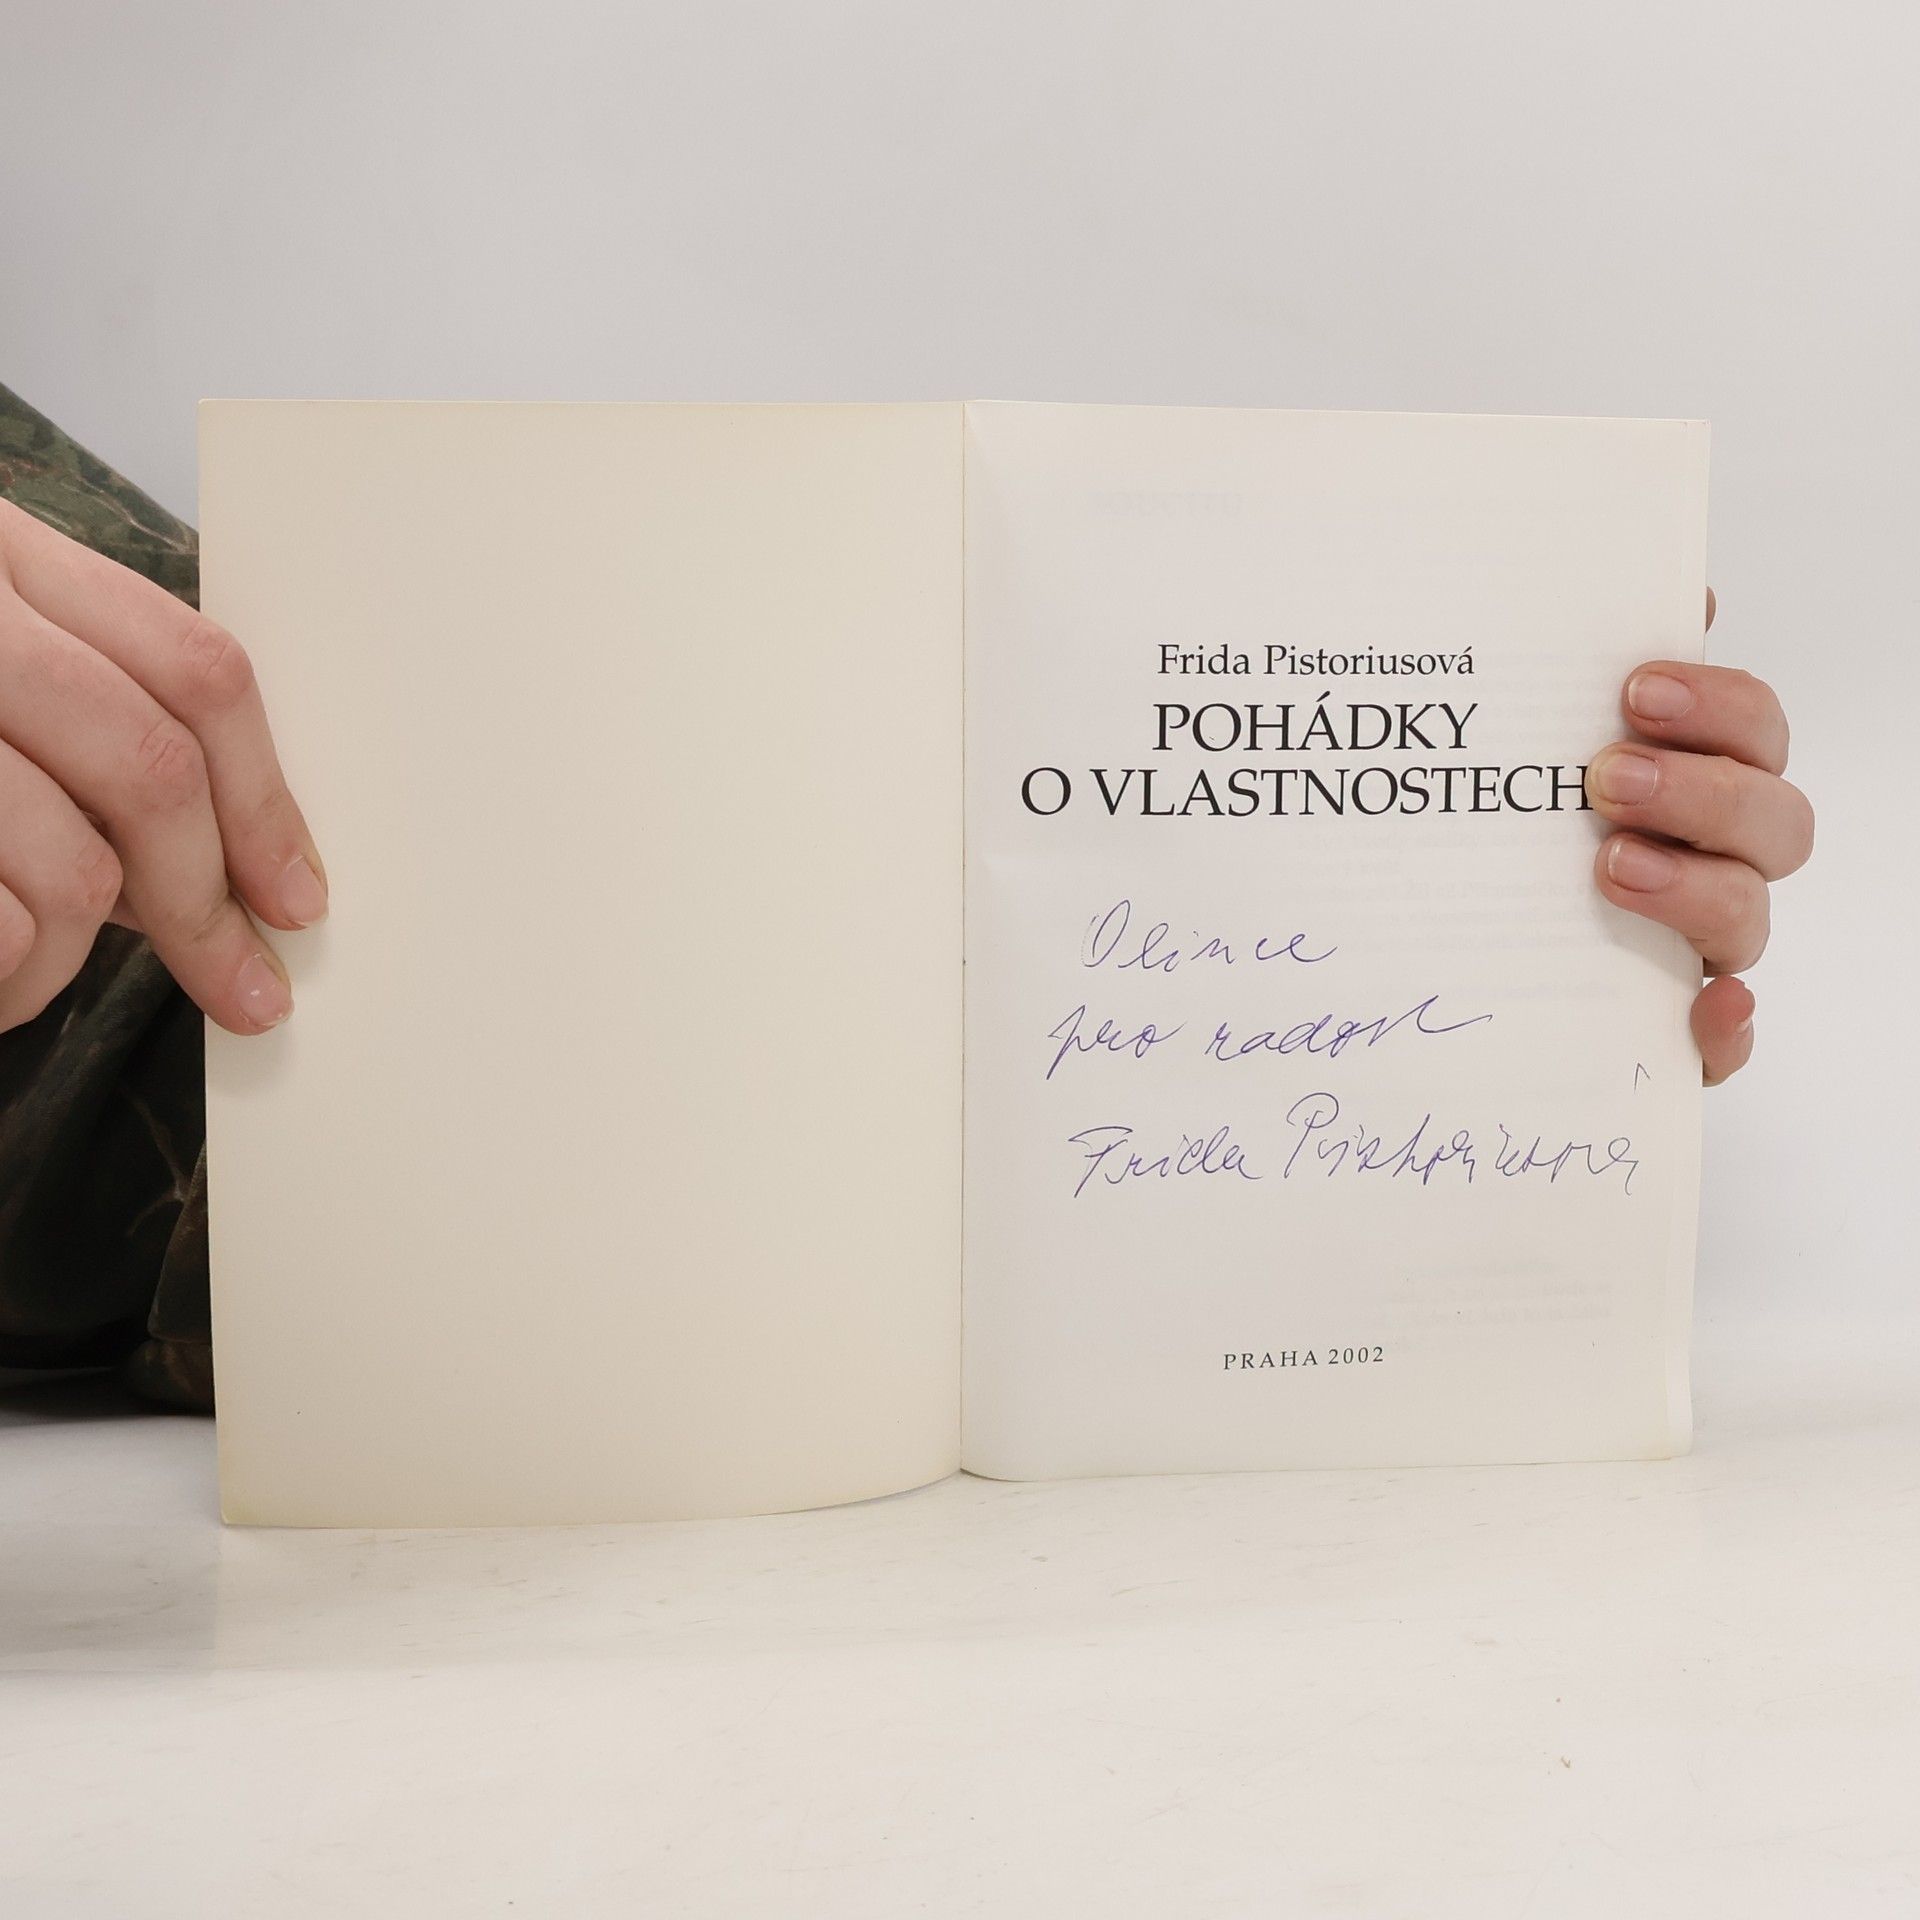 Frida Pistoriusová
POHÁDKY
O VLASTNOSTECH
Olince
pro radost
Frida Pistoriusová
PRAHA 2002